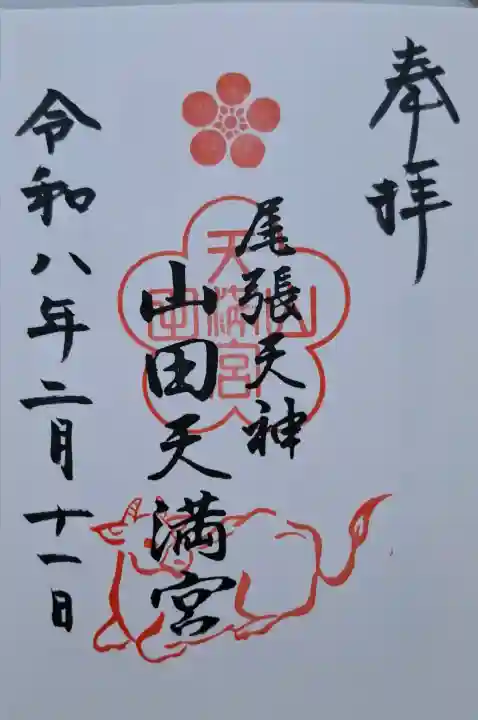 奉拝
尾張天神
山田天満宮
天満宮
山田
令和八年二月十一日